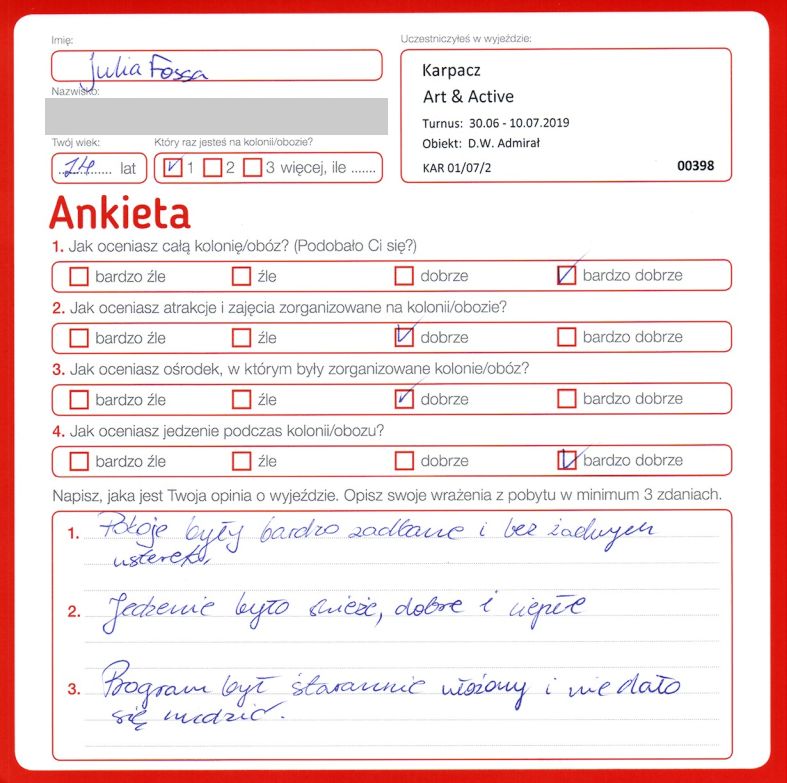 Imię:
Julia Fossa
Nazwisko:
Uczestniczyłeś w wyjeździe:
Karpacz
Art & Active
Turnus: 30.06 - 10.07.2019
Obiekt: D.W. Admirał
KAR 01/07/2
00398
Twój wiek:
14 lat
Który raz jesteś na kolonii/obozie?
1 2 3 więcej, ile .......
Ankieta
1. Jak oceniasz całą kolonię/obóz? (Podobało Ci się?)
bardzo źle źle dobrze bardzo dobrze
2. Jak oceniasz atrakcje i zajęcia zorganizowane na kolonii/obozie?
bardzo źle źle dobrze bardzo dobrze
3. Jak oceniasz ośrodek, w którym były zorganizowane kolonie/obóz?
bardzo źle źle dobrze bardzo dobrze
4. Jak oceniasz jedzenie podczas kolonii/obozu?
bardzo źle źle dobrze bardzo dobrze
Napisz, jaka jest Twoja opinia o wyjeździe. Opisz swoje wrażenia z pobytu w minimum 3 zdaniach.
1. Pokoje były bardzo zadbane i bez żadnych
usterek,
2. Jedzenie było świeże, dobre i ciepłe
3. Program był starannie ułożony i nie dało
się nudzić.